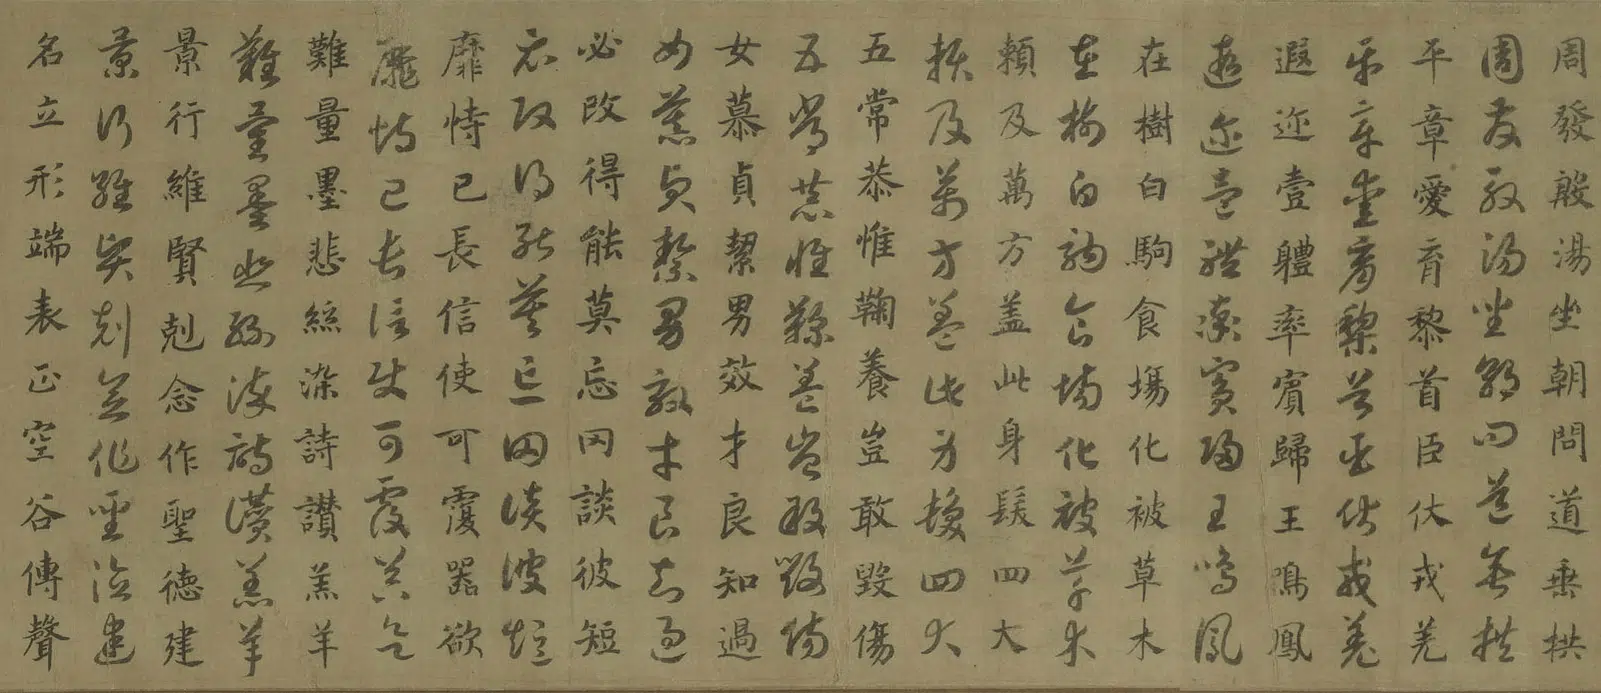 周發殷湯坐朝問道垂拱
周發殷湯坐朝問道垂拱
平章愛育黎首臣伏戎羌
平章愛育黎首臣伏戎羌
遐迩壹軆率賓歸王鳴鳳
遐迩壹體率賓歸王鳴鳳
在樹白駒食塲化被草木
在樹白駒食場化被草木
賴及萬方盖此身髮四大
賴及萬方盖此身髮四大
五常恭惟鞠養豈敢毀傷
五常恭惟鞠養豈敢毀傷
女慕貞絜男效才良知過
女慕貞絜男效才良知過
必改得能莫忘罔談彼短
必改得能莫忘罔談彼短
靡恃己長信使可覆器欲
靡恃己長信使可覆器欲
難量墨悲絲染詩讃羔羊
難量墨悲絲染詩讃羔羊
景行維賢剋念作聖德建
景行維賢剋念作聖德建
名立形端表正空谷傳聲